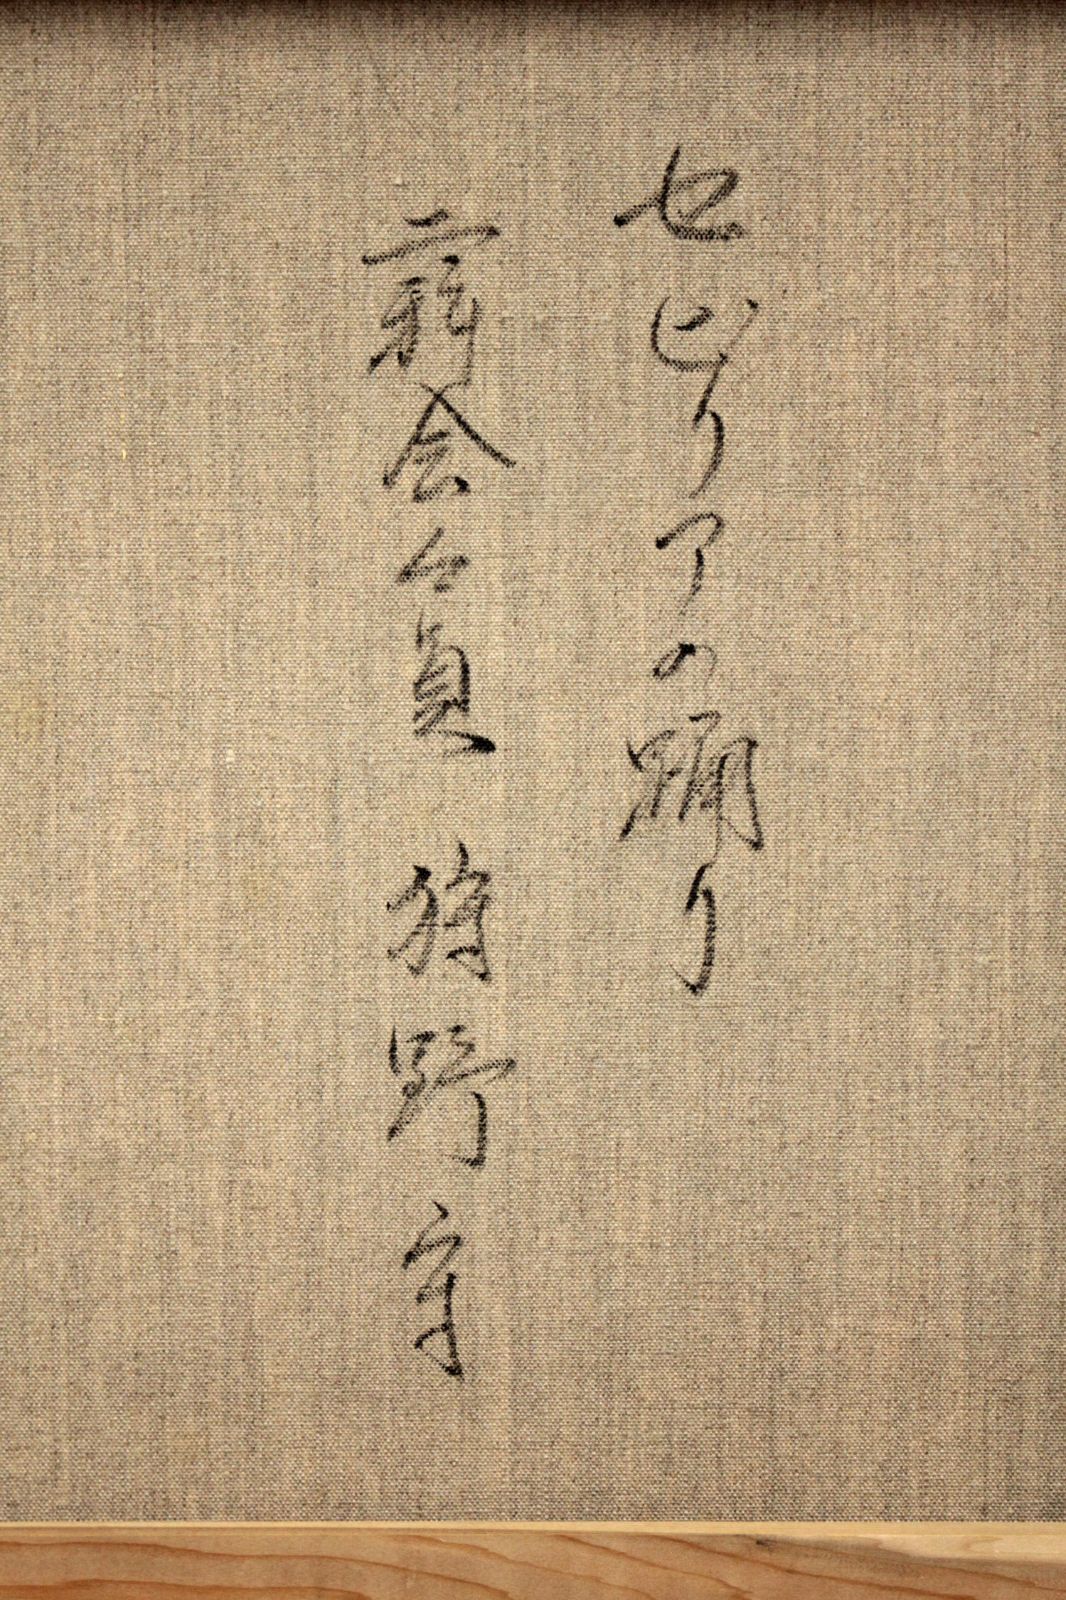 セビリアの踊り
二科会会員 狩野守